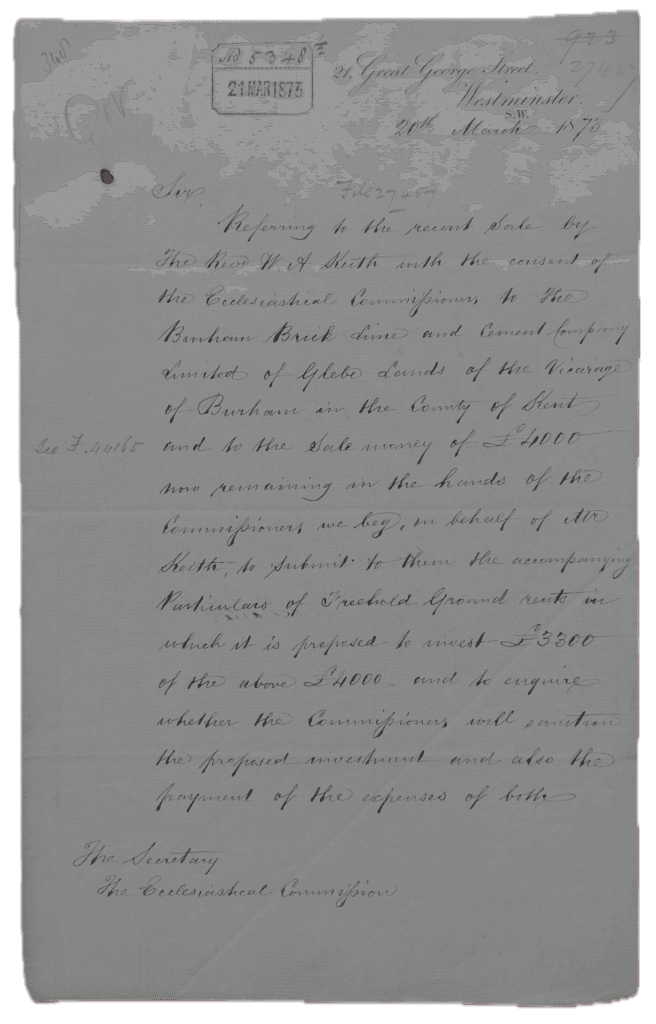 No 5348
21 MAR 1873
923
27467
21, Great George Street.
Westminster.
S.W.
20th March 1873
Sir,
File 27467
Referring to the recent Sale by
The Revd W. A Keith with the consent of
the Ecclesiastical Commissioners to The
Burham Brick Lime and Cement Company
Limited of Glebe Lands of the Vicarage
of Burham in the County of Kent
See F. 44165
and to the Sale money of £4000
now remaining in the hands of the
Commissioners we beg, on behalf of Mr
Keith, to submit to them the accompanying
Particulars of Freehold Ground rents in
which it is proposed to invest £3300
of the above £4000 - and to enquire
whether the Commissioners will sanction
the proposed investment and also the
payment of the expenses of both
The Secretary
The Ecclesiastical Commission